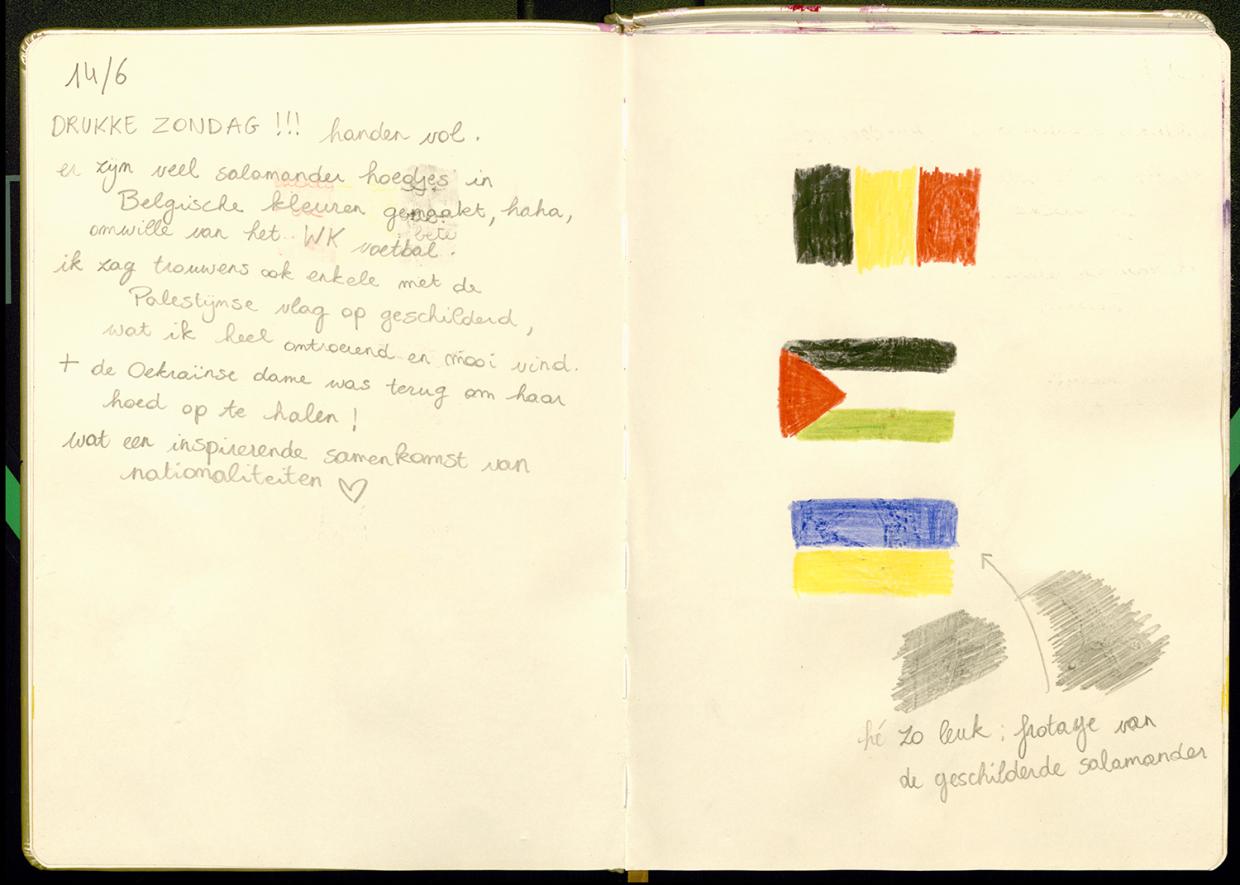 14/6
DRUKKE ZONDAG !!! handen vol.
er zijn veel salamander hoedjes in
Belgische kleuren gemaakt, haha,
omwille van het WK voetbal.
ik zag trouwens ook enkele met de
Palestijnse vlag op geschilderd,
wat ik heel ontroerend en mooi vind.
+ de Oekraïnse dame was terug om haar
hoed op te halen !
wat een inspirerende samenkomst van
nationaliteiten ♡
hé zo leuk : frotage van
de geschilderde salamander